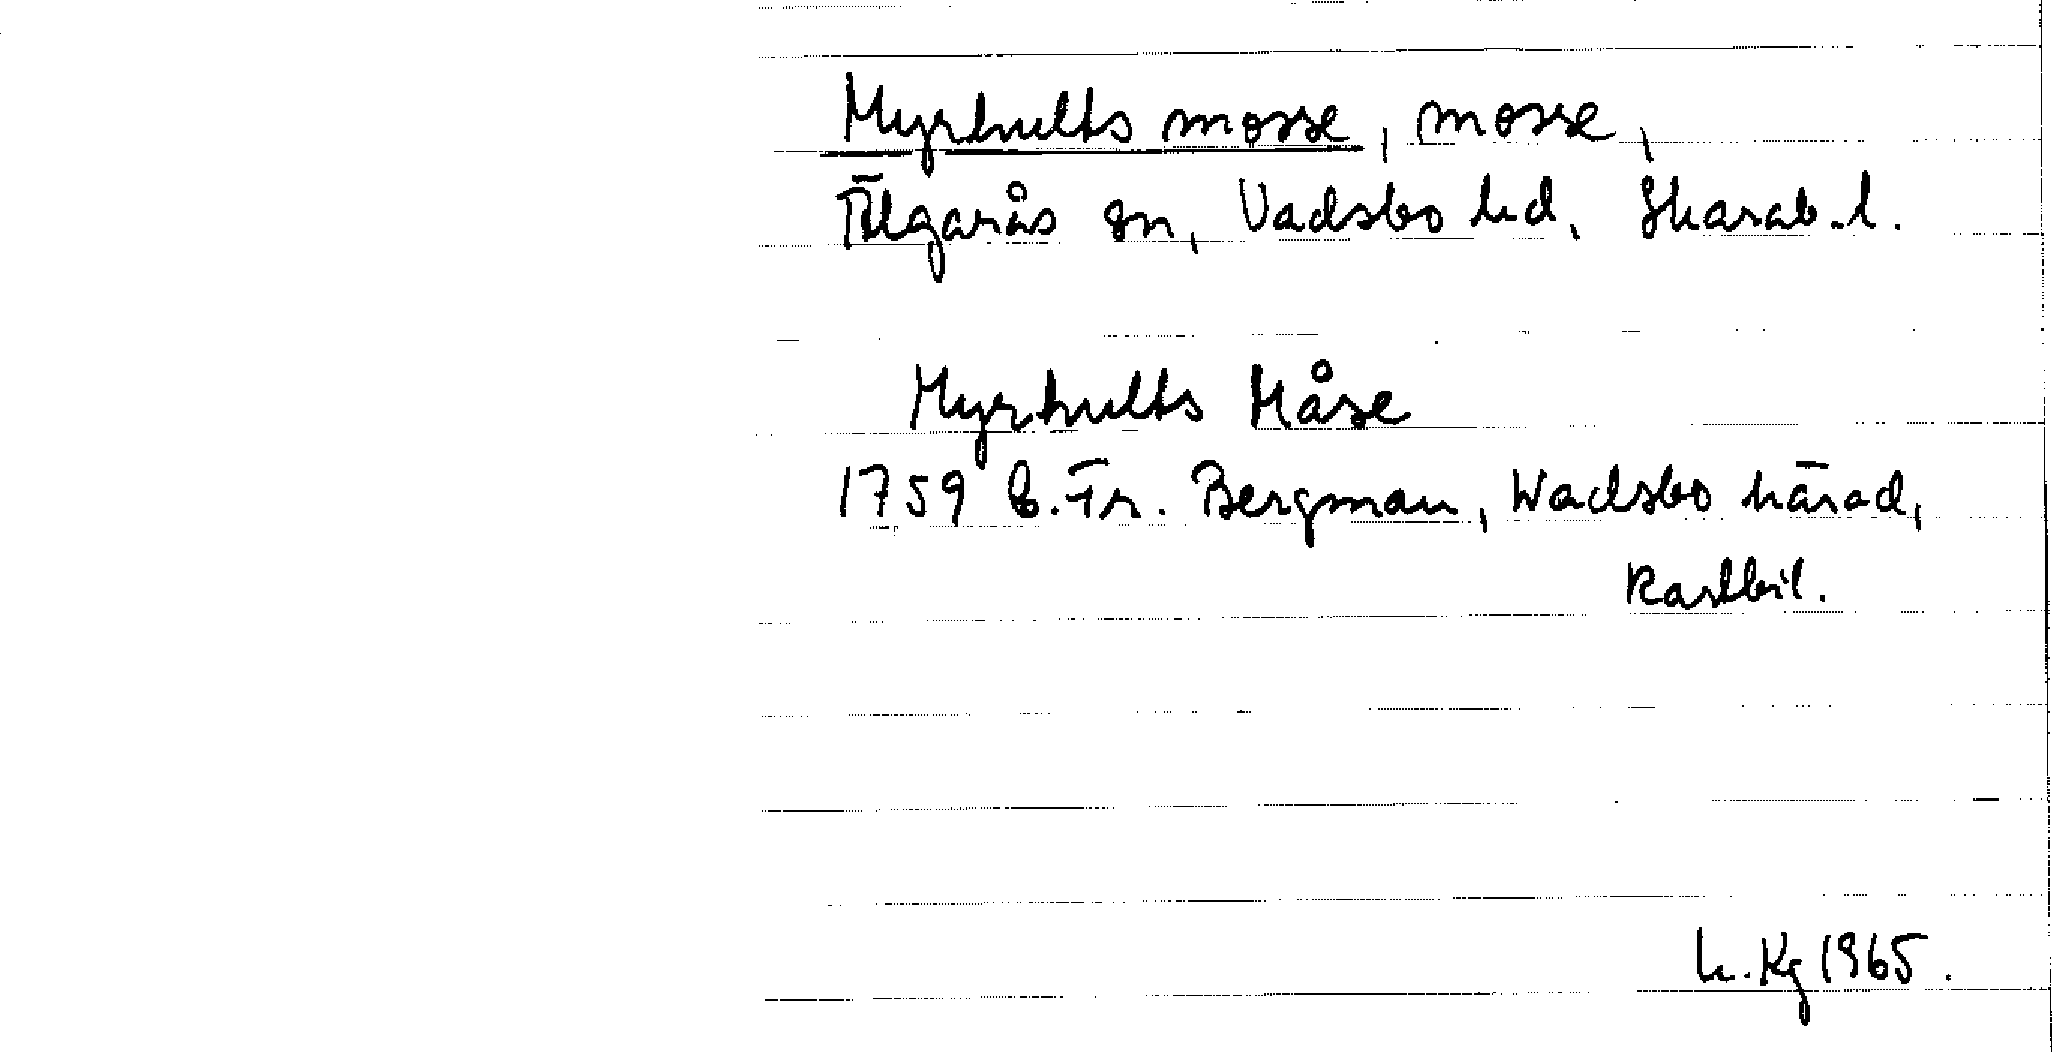 Myrhults mosse, mosse,
Älgarås sn, Vadsbo hd, Skarab.l.
Myrhults Måse
1759 B. Fr. Bergman, Wadsbo härad,
Kartbil.
h. Kg 1965.